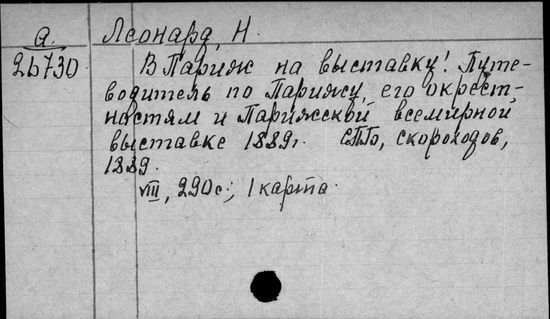 а. Леонард, Н.
26730
В Париж на выставку! Путе-
водитель по Парижу, его окрест-
ностям и Парижской всемирной
выставке 1889г. СПб, скороходов,
1889.
VIII, 290с.; 1 карта.